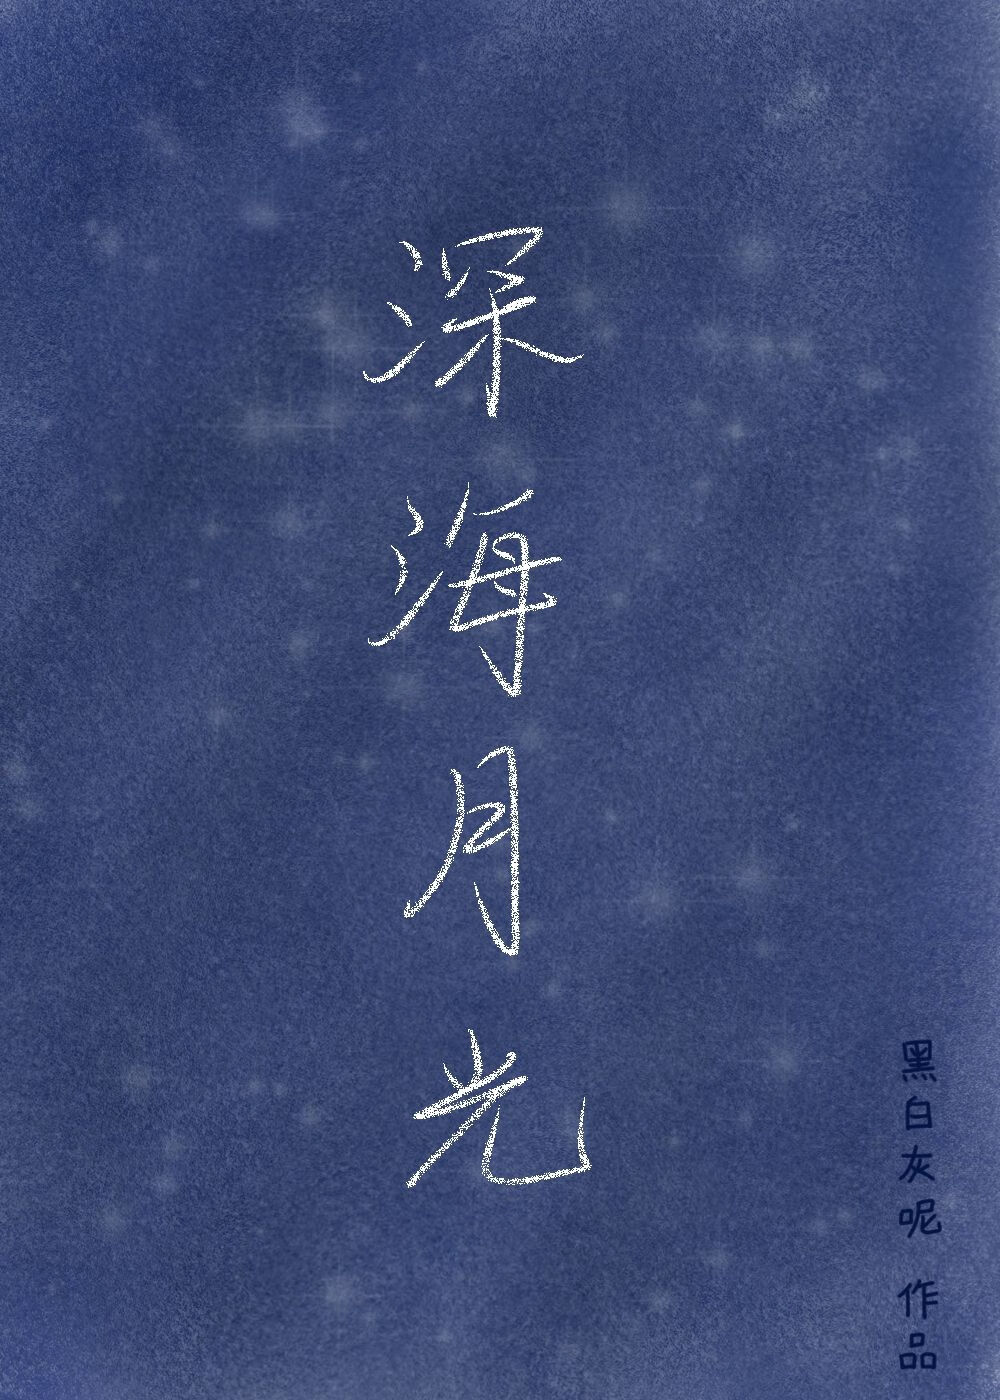 深海月光
黑白灰呢 作品